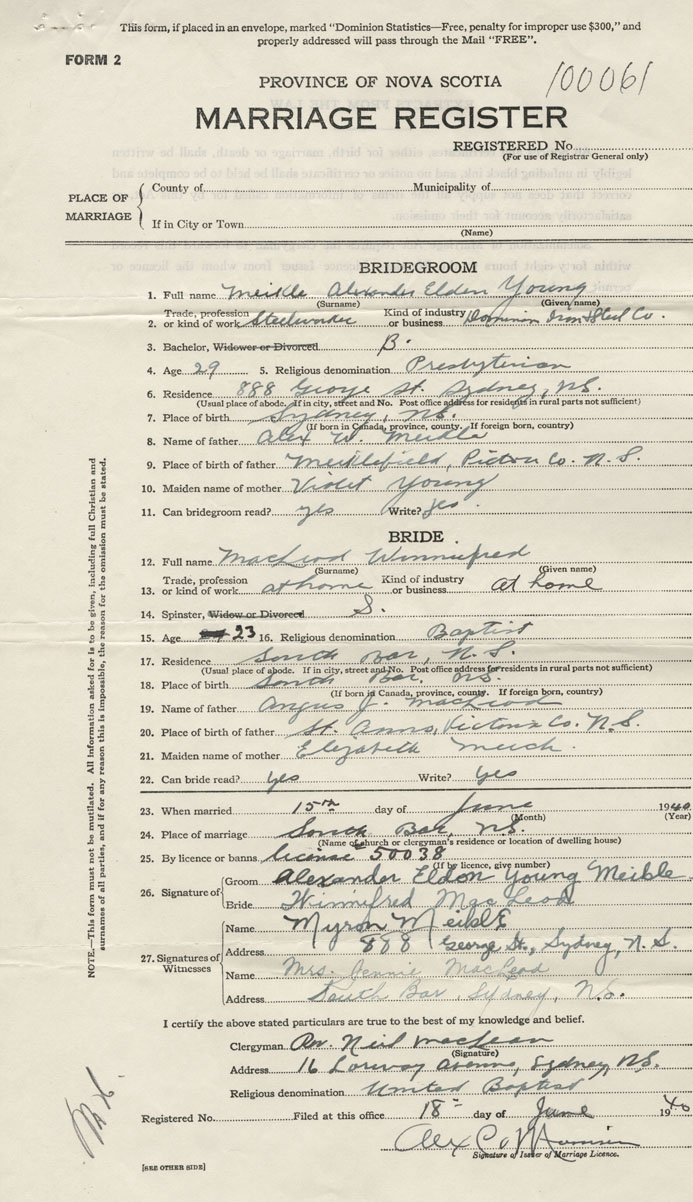 This form, if placed in an envelope, marked "Dominion Statistics—Free, penalty for improper use $300," and
properly addressed will pass through the Mail "FREE".
FORM 2
100061
PROVINCE OF NOVA SCOTIA
MARRIAGE REGISTER
REGISTERED No.
(For use of Registrar General only)
PLACE OF MARRIAGE
County of Municipality of
If in City or Town
(Name)
BRIDEGROOM
1. Full name Meikle Alexander Eldon Young
(Surname) (Given name)
2. Trade, profession or kind of work Steelworker Kind of industry or business Dominion Iron & Steel Co.
3. Bachelor, Widower or Divorced B.
4. Age 29 5. Religious denomination Presbyterian
6. Residence 888 George St. Sydney, N.S.
(Usual place of abode. If in city, street and No. Post office address for residents in rural parts not sufficient)
7. Place of birth Sydney, N.S.
(If born in Canada, province, county. If foreign born, country)
8. Name of father Alex W. Meikle
9. Place of birth of father Meiklefield, Pictou Co. N.S.
10. Maiden name of mother Violet Young
11. Can bridegroom read? yes Write? yes
BRIDE
12. Full name MacLeod Winnifred
(Surname) (Given name)
13. Trade, profession or kind of work at home Kind of industry or business at home
14. Spinster, Widow or Divorced S.
15. Age 23 16. Religious denomination Baptist
17. Residence South Bar, N.S.
(Usual place of abode. If in city, street and No. Post office address for residents in rural parts not sufficient)
18. Place of birth South Bar, N.S.
(If born in Canada, province, county. If foreign born, country)
19. Name of father Angus J. MacLeod
20. Place of birth of father St. Anns, Victoria Co. N.S.
21. Maiden name of mother Elizabeth
22. Can bride read? yes Write? yes
23. When married 15th day of June 1940
(Month) (Year)
24. Place of marriage South Bar, N.S.
(Name of church or clergyman's residence or location of dwelling house)
25. By licence or banns license 50038
(If by licence, give number)
26. Signature of
Groom Alexander Eldon Young Meikle
Bride Winnifred MacLeod
27. Signatures of Witnesses
Name Myron Meikle
Address 888 George St., Sydney, N.S.
Name Mrs. Jennie MacLeod
Address South Bar, Sydney, N.S.
I certify the above stated particulars are true to the best of my knowledge and belief.
Clergyman Neil MacLean
(Signature)
Address 16 Avenue, Sydney, N.S.
Religious denomination United Baptist
Registered No. Filed at this office 18 day of June 1940
Alex
Signature of Issuer of Marriage Licence.
[SEE OTHER SIDE]
NOTE.—This form must not be mutilated. All information asked for is to be given, including full Christian and
surnames of all parties, and if for any reason this is impossible, the reason for the omission must be stated.